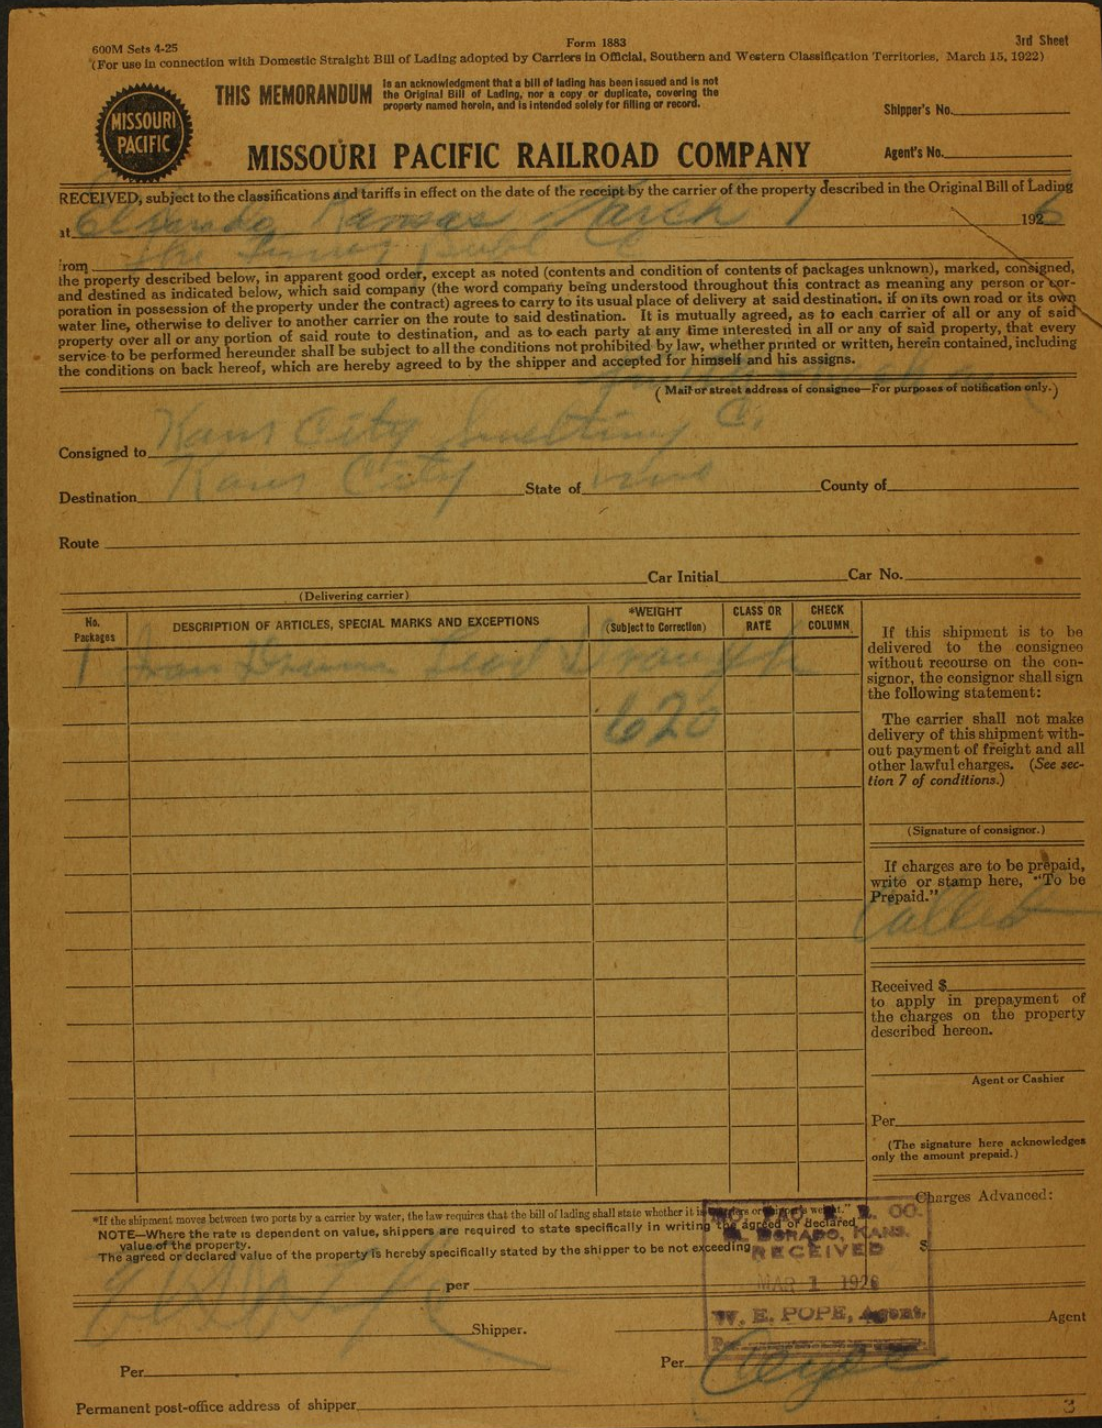 600M Sets 4-25
Form 1883
3rd Sheet
(For use in connection with Domestic Straight Bill of Lading adopted by Carriers in Official, Southern and Western Classification Territories, March 15, 1922)
MISSOURI PACIFIC
THIS MEMORANDUM
is an acknowledgment that a bill of lading has been issued and is not
the Original Bill of Lading, nor a copy or duplicate, covering the
property named herein, and is intended solely for filling or record.
Shipper's No.
MISSOURI PACIFIC RAILROAD COMPANY
Agent's No.
RECEIVED, subject to the classifications and tariffs in effect on the date of the receipt by the carrier of the property described in the Original Bill of Lading
at El Dorado, Kansas March 1 1926
rom The
the property described below, in apparent good order, except as noted (contents and condition of contents of packages unknown), marked, consigned,
and destined as indicated below, which said company (the word company being understood throughout this contract as meaning any person or cor-
poration in possession of the property under the contract) agrees to carry to its usual place of delivery at said destination. if on its own road or its own
water line, otherwise to deliver to another carrier on the route to said destination. It is mutually agreed, as to each carrier of all or any of said
property over all or any portion of said route to destination, and as to each party at any time interested in all or any of said property, that every
service to be performed hereunder shall be subject to all the conditions not prohibited by law, whether printed or written, herein contained, including
the conditions on back hereof, which are hereby agreed to by the shipper and accepted for himself and his assigns.
(Mail or street address of consignee—For purposes of notification only.)
Consigned to Kans City Smelting C.
Destination Kans City State of mo County of
Route
(Delivering carrier) Car Initial Car No.
No. Packages
DESCRIPTION OF ARTICLES, SPECIAL MARKS AND EXCEPTIONS
*WEIGHT (Subject to Correction)
CLASS OR RATE
CHECK COLUMN
1 Iron Drum Lead
620
If this shipment is to be
delivered to the consignee
without recourse on the con-
signor, the consignor shall sign
the following statement:
The carrier shall not make
delivery of this shipment with-
out payment of freight and all
other lawful charges. (See sec-
tion 7 of conditions.)
(Signature of consignor.)
If charges are to be prepaid,
write or stamp here, "To be
Prepaid."
Collect
Received $
to apply in prepayment of
the charges on the property
described hereon.
Agent or Cashier
Per
(The signature here acknowledges
only the amount prepaid.)
Charges Advanced:
$
*If the shipment moves between two ports by a carrier by water, the law requires that the bill of lading shall state whether it is "carrier's or shipper's weight."
NOTE—Where the rate is dependent on value, shippers are required to state specifically in writing the agreed or declared
value of the property.
The agreed or declared value of the property is hereby specifically stated by the shipper to be not exceeding
per
MO. PAC. R. R. CO.
EL DORADO, KANS.
RECEIVED
MAR 1 1926
W. E. POPE, Agent.
Shipper.
Agent
Per
Per Clyde
Permanent post-office address of shipper
3